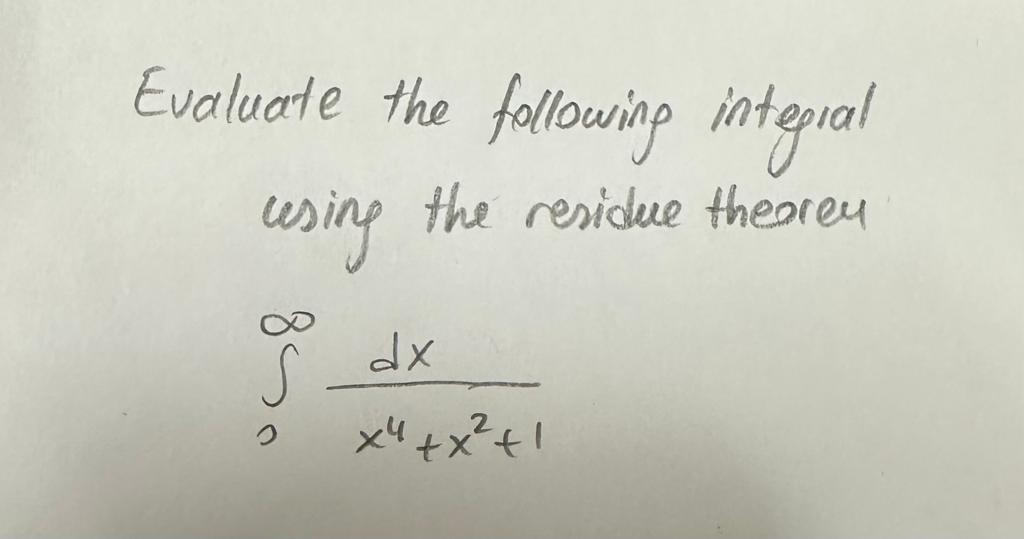 Evaluate the following integral
using the residue theorem
∞
∫ dx
0 x⁴+x²+1